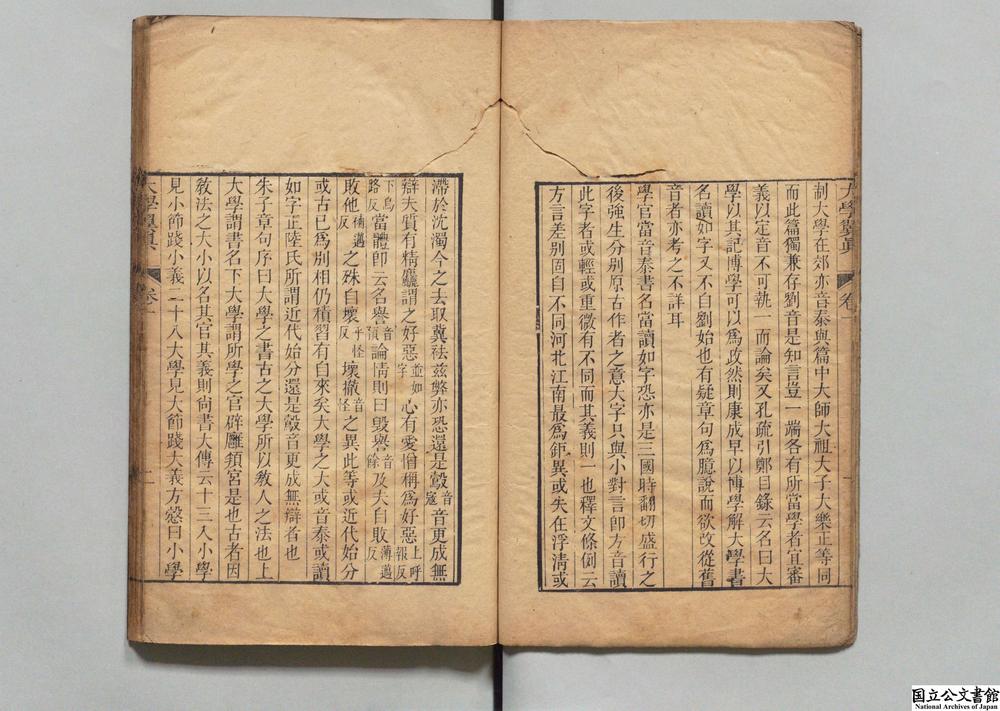 大學翼真 卷一
制大學在郊亦音泰與篇中大師大祖大子大樂正等同
而此篇獨兼存劉音是知言豈一端各有所當學者宜審
義以定音不可執一而論矣又孔疏引鄭目錄云名曰大
學以其記博學可以爲政然則康成早以博學解大學書
名讀如字又不自劉始也有疑章句爲臆說而欲改從舊
音者亦考之不詳耳
學官當音泰書名當讀如字恐亦是三國時翻切盛行之
後強生分別原古作者之意大字只與小對言卽方音讀
此字者或輕或重微有不同而其義則一也釋文條例云
方言差别固自不同河北江南最爲鉅異或失在浮淸或
滯於沈濁今之去取冀祛茲弊亦恐還是鷇音寇音更成無
辯夫質有精麤謂之好惡並如字心有愛憎稱爲好惡上呼報反
下烏路反當體卽云名譽音預論情則曰毁譽音餘及夫自敗薄邁反
敗他補邁反之殊自壞乎怪反壞撤音怪之異此等或近代始分
或古已爲别相仍積習有自來矣大學之大或音泰或讀
如字正陸氏所謂近代始分還是鷇音更成無辯者也
朱子章句序曰大學之書古之大學所以敎人之法也上
大學謂書名下大學謂所學之官辟廱頖宮是也古者因
敎法之大小以名其官其義則尙書大傳云十三入小學
見小節踐小義二十八大學見大節踐大義方慤曰小學
大學翼真 卷一 二
国立公文書館
National Archives of Japan